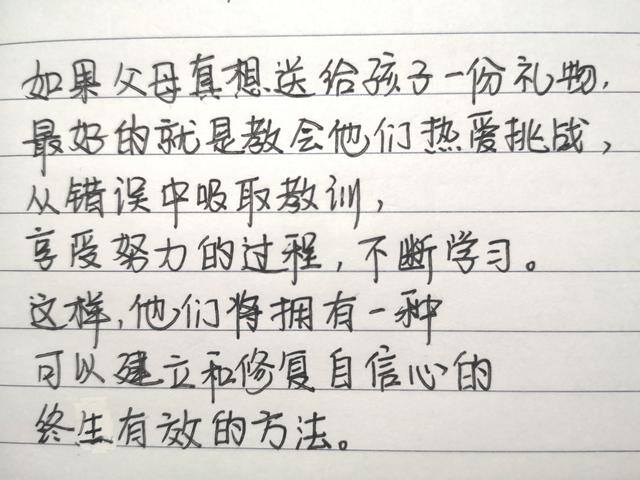 如果父母真想送给孩子一份礼物，
最好的就是教会他们热爱挑战，
从错误中吸取教训，
享受努力的过程，不断学习。
这样，他们将拥有一种
可以建立和修复自信心的
终生有效的方法。